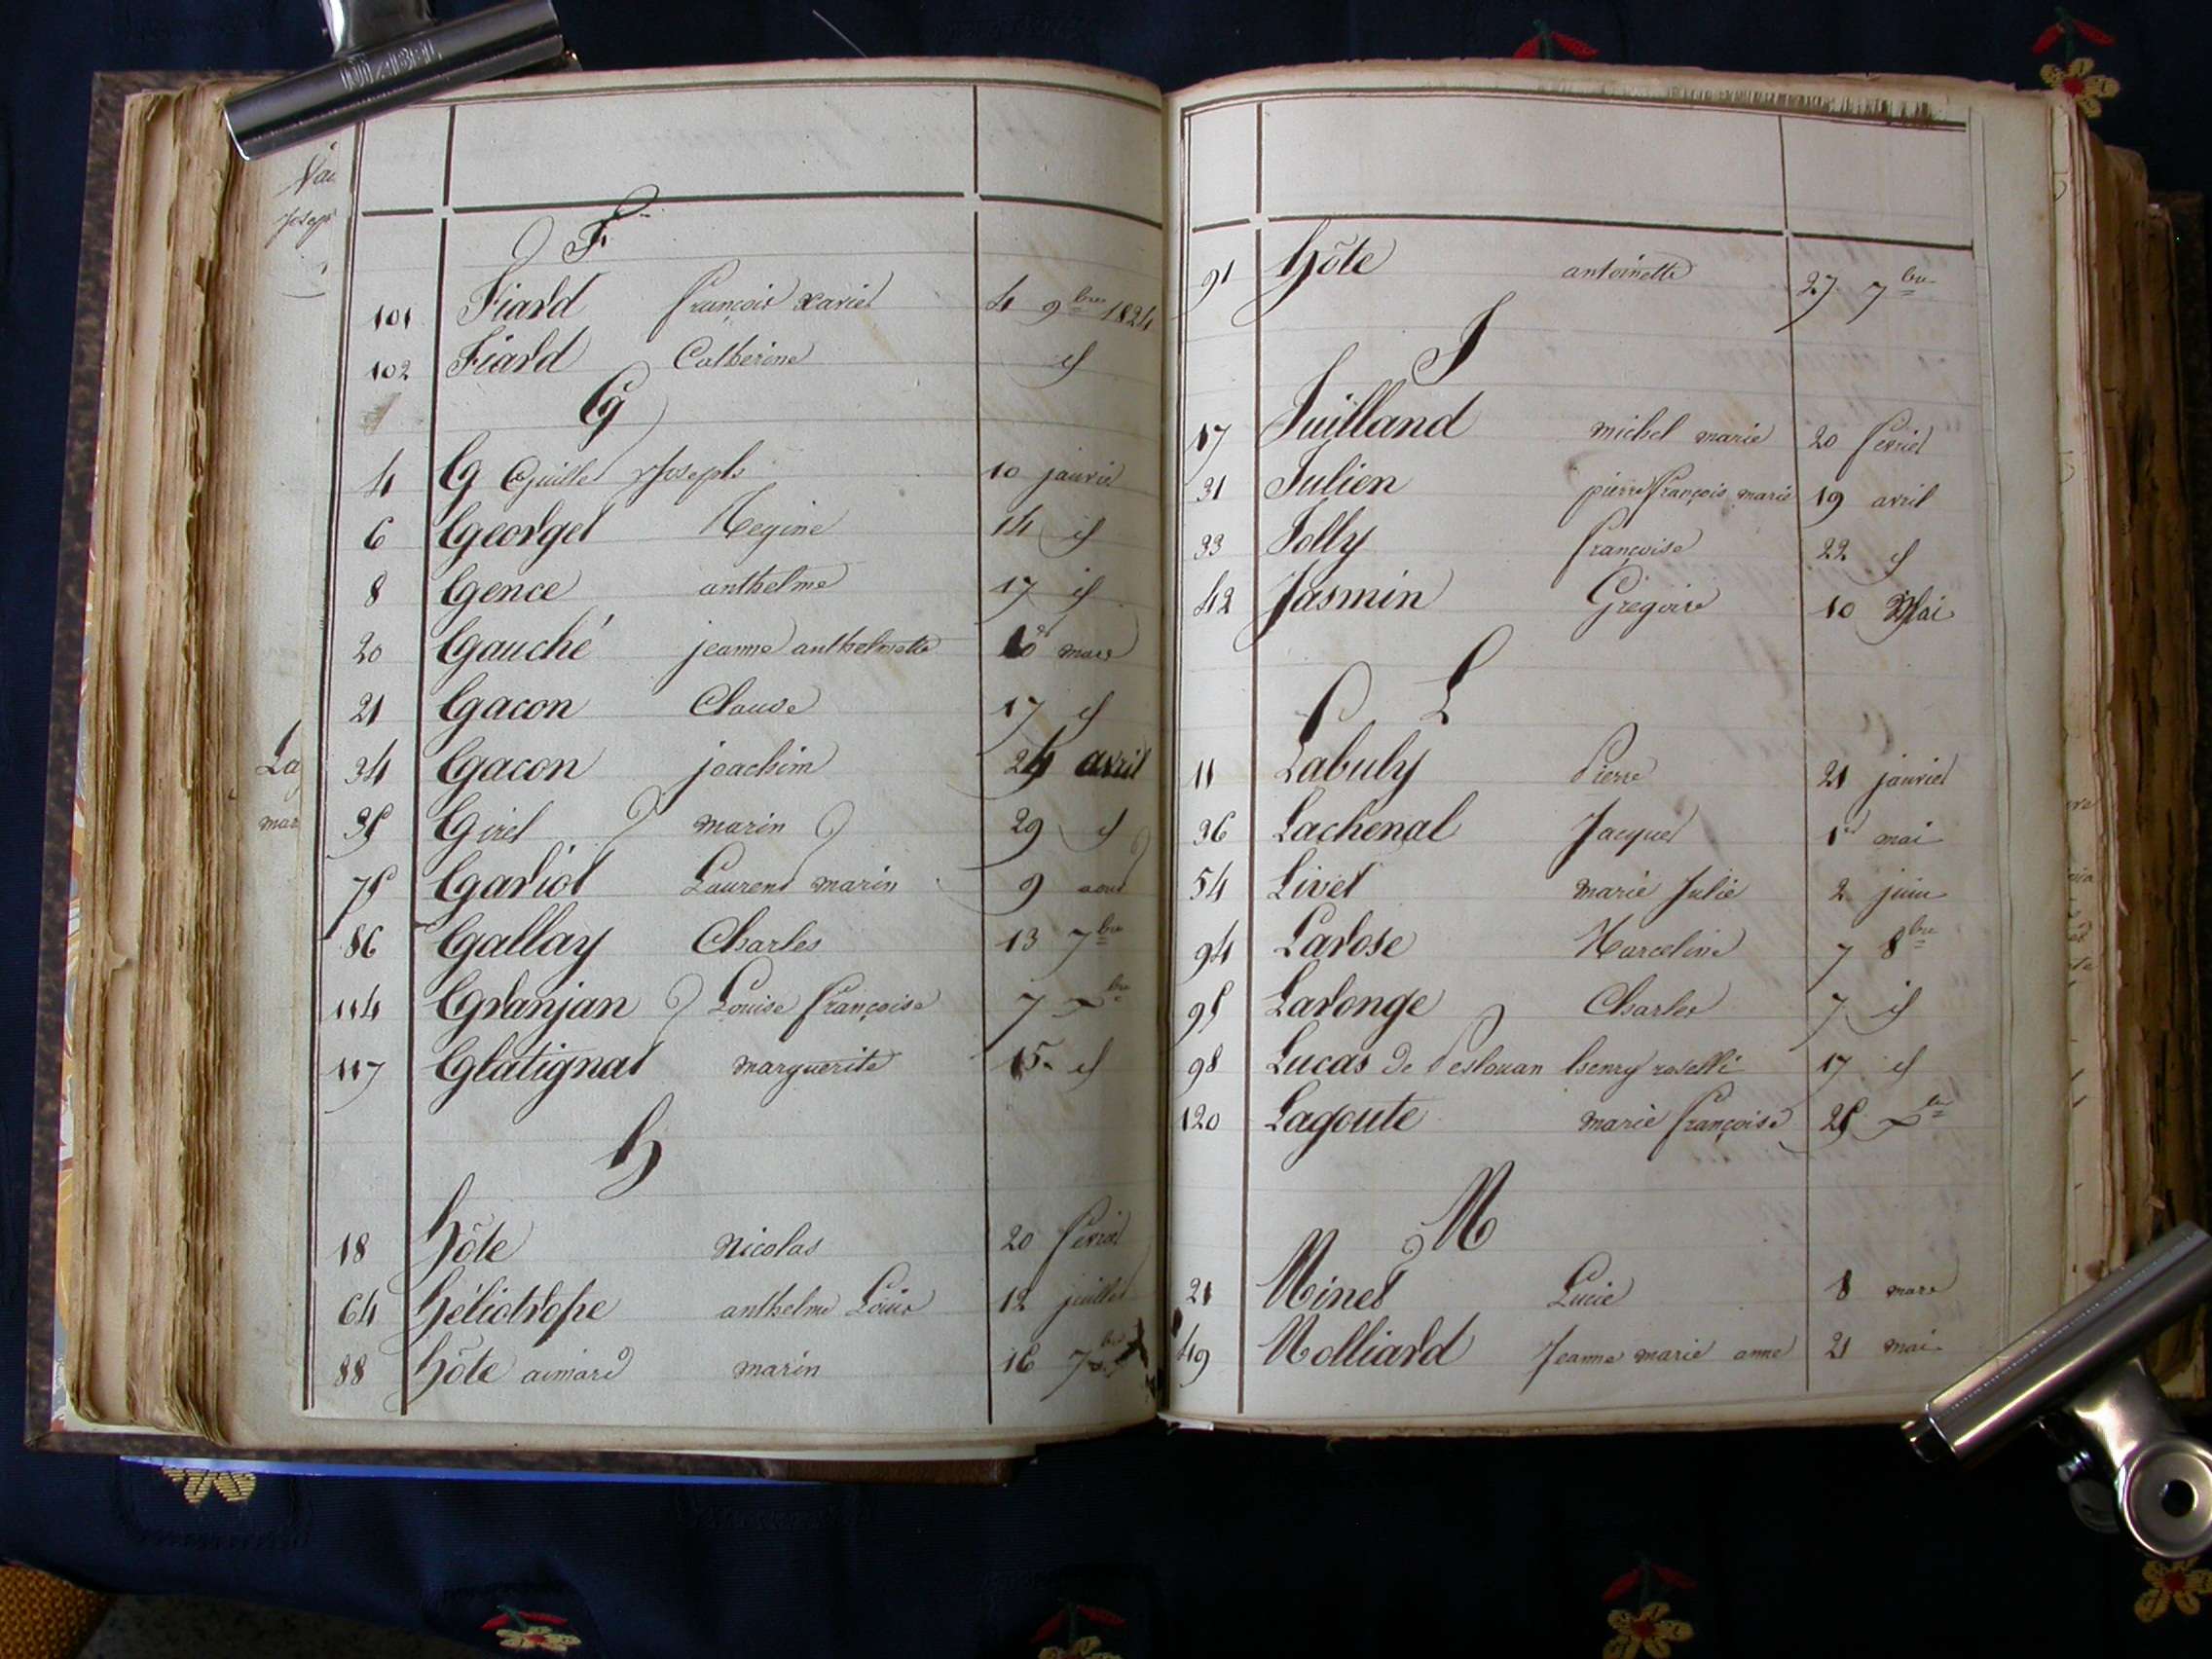 MABEL
Joseph
La
mar
F
101 Fiard françois Xavier 4 9bre 1824
102 Fiard Catherine id
G
4 G Guillet Joseph 10 janvier
6 Georget Regine 14 id
8 Gence anthelme 17 id
20 Gauché jeanne anthelmette mars
21 Gacon Claude 17 id
34 Gacon joachim 24 avril
35 Girel marin 29 id
75 Gariot Laurent marin 9 aout
86 Gallay Charles 13 7bre
114 Granjan Louise françoise 7 Xbre
117 Glatignat marguerite 15 id
h
18 hôte Nicolas 20 février
64 héliotrope anthelme Louis 12 juillet
88 hôte aimard marin 16 7bre
91 hôte antoinette 27 7bre
J
17 Juilland michel marie 20 fevrier
31 Julien pierre françois marie 19 avril
33 Jolly françoise 22 id
42 Jasmin Gregoire 10 Mai
L
11 Labuly Pierre 21 janvier
36 Lachenal Jacques 1er mai
54 Livet marie Julie 2 juin
94 Larose Marceline 7 8bre
95 Laronge Charles 7 id
98 Lucas de Peslouan henry roselli 17 id
120 Lagoute marie françoise 25 Xbre
M
21 Minet Lucie 8 mars
49 Molliard Jeanne marie anne 21 mai